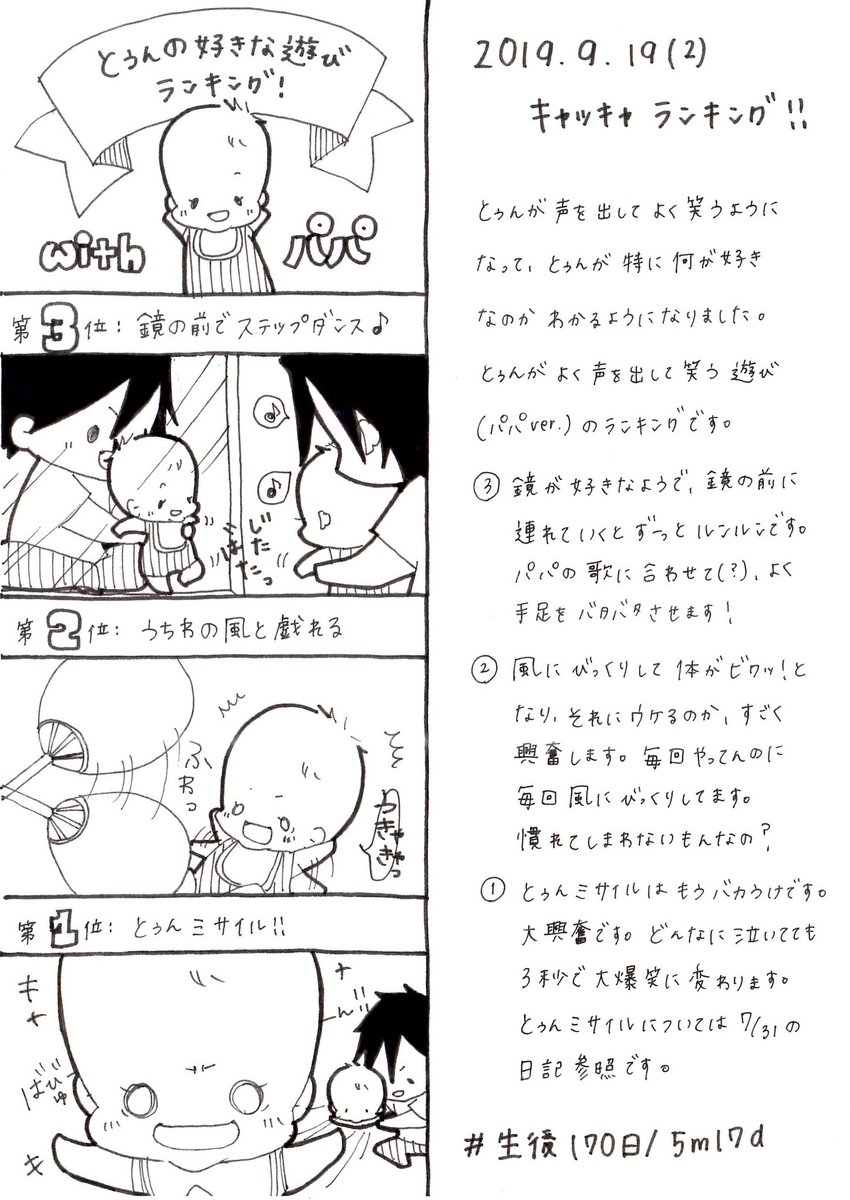 とぅんの好きな遊び
ランキング!
with パパ
第3位:鏡の前でステップダンス♪
♪
♪
じたばたっ
第2位:うちわの風と戯れる
ふわっ
うきゃきゃっ
第1位:とぅんミサイル!!
キャ
キ
ばびゅ
ん!!
2019.9.19(2)
キャッキャ ランキング!!
とぅんが 声を出して よく 笑うように
なって、とぅんが 特に 何が好き
なのか わかるようになりました。
とぅんが よく 声を出して 笑う 遊び
(パパver.)のランキングです。
③ 鏡が 好きなようで、鏡の前に
連れていくと ずーっと ルンルンです。
パパの 歌に 合わせて(?)、よく
手足を バタバタさせます!
② 風に びっくりして 体が ビクッ!と
なり、それに ウケるのか、すごく
興奮します。毎回 やってんのに
毎回 風に びっくりしてます。
慣れてしまわないもんなの?
① とぅんミサイルは もう バカうけです。
大興奮です。どんなに 泣いてても
3秒で 大爆笑に 変わります。
とぅんミサイルについては 7/31の
日記 参照です。
#生後170日/5m17d